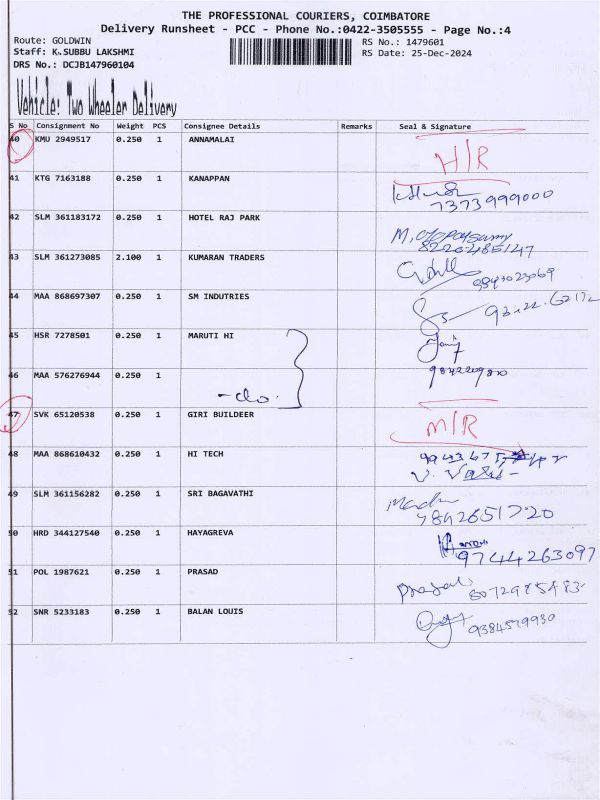 THE PROFESSIONAL COURIERS, COIMBATORE
Delivery Runsheet - PCC - Phone No.:0422-3505555 - Page No.:4
Route: GOLDWIN
Staff: K.SUBBU LAKSHMI
DRS No.: DCJB147960104
RS No.: 1479601
RS Date: 25-Dec-2024
Vehicle: Two Wheeler Delivery
S No Consignment No Weight PCS Consignee Details Remarks Seal & Signature
40 KMU 2949517 0.250 1 ANNAMALAI
41 KTG 7163188 0.250 1 KANAPPAN 7373999000
42 SLM 361183172 0.250 1 HOTEL RAJ PARK
43 SLM 361273085 2.100 1 KUMARAN TRADERS
44 MAA 868697307 0.250 1 SM INDUTRIES
45 HSR 7278501 0.250 1 MARUTI HI
46 MAA 576276944 0.250 1 -do.
47 SVK 65120538 0.250 1 GIRI BUILDEER
48 MAA 868610432 0.250 1 HI TECH
49 SLM 361156282 0.250 1 SRI BAGAVATHI
50 HRD 344127540 0.250 1 HAYAGREVA 9744263097
51 POL 1987621 0.250 1 PRASAD
52 SNR 5233183 0.250 1 BALAN LOUIS